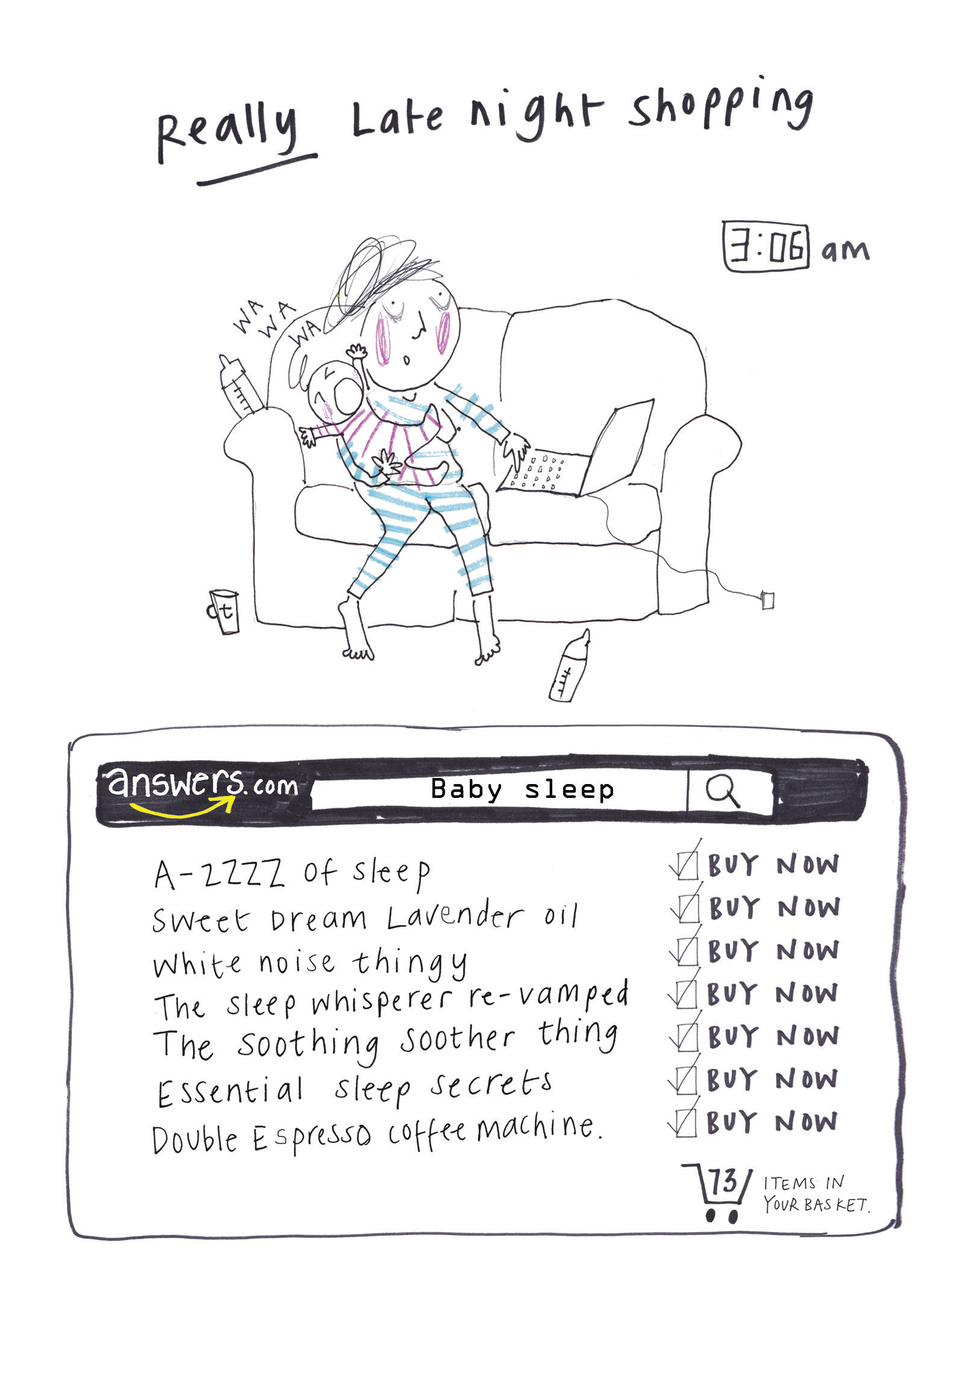 Really Late night shopping
3:06 am
WA
WA
WA
t
answers.com
Baby sleep
A-ZZZZ of sleep BUY NOW
Sweet Dream Lavender oil BUY NOW
White noise thingy BUY NOW
The sleep whisperer re-vamped BUY NOW
The Soothing Soother thing BUY NOW
Essential sleep secrets BUY NOW
Double Espresso coffee machine. BUY NOW
73 ITEMS IN
YOUR BASKET.